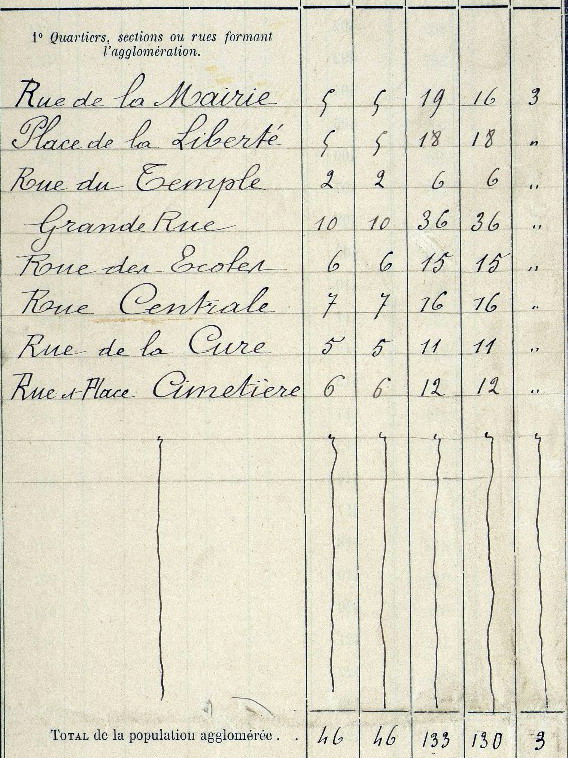 1° Quartiers, sections ou rues formant
l'agglomération.
Rue de la Mairie 5 5 19 16 3
Place de la Liberté 5 5 18 18 "
Rue du Temple 2 2 6 6 "
Grande Rue 10 10 36 36 "
Rue des Ecoles 6 6 15 15 "
Rue Centrale 7 7 16 16 "
Rue de la Cure 5 5 11 11 "
Rue et Place Cimetière 6 6 12 12 "
TOTAL de la population agglomérée . . 46 46 133 130 3